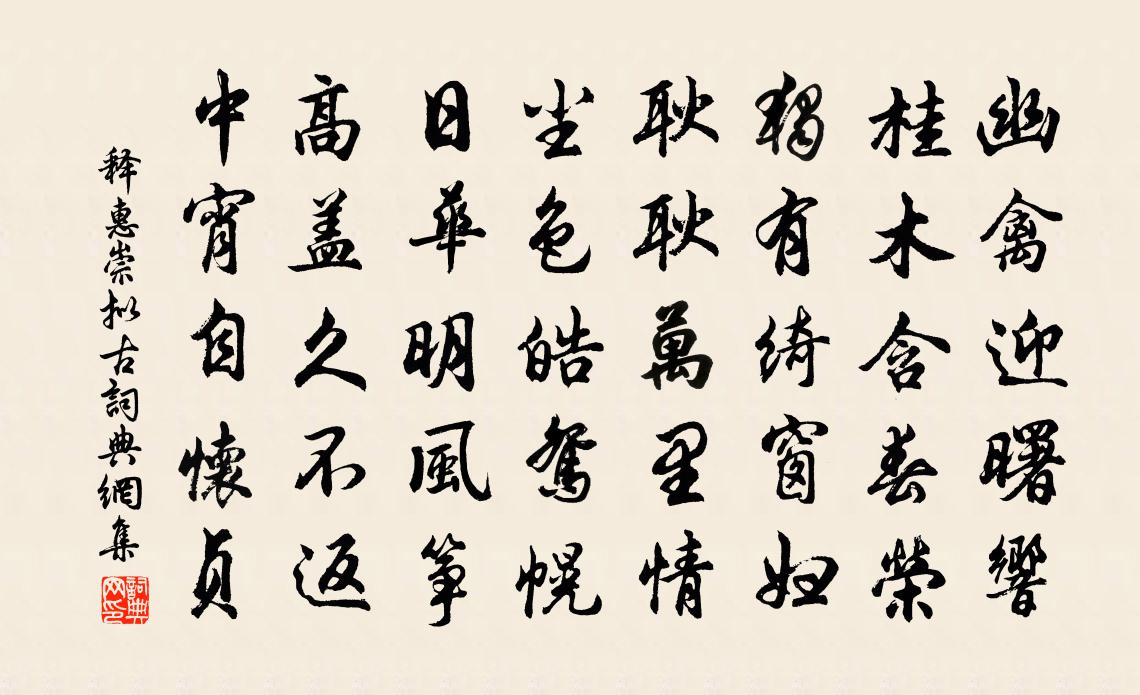 幽禽迎曙響
桂木含春榮
獨有綺窗妇
耿耿萬里情
尘色皓鴛幌
日華明風筝
高盖久不返
中宵自懷貞
释惠崇拟古詞典網集
詞典网印